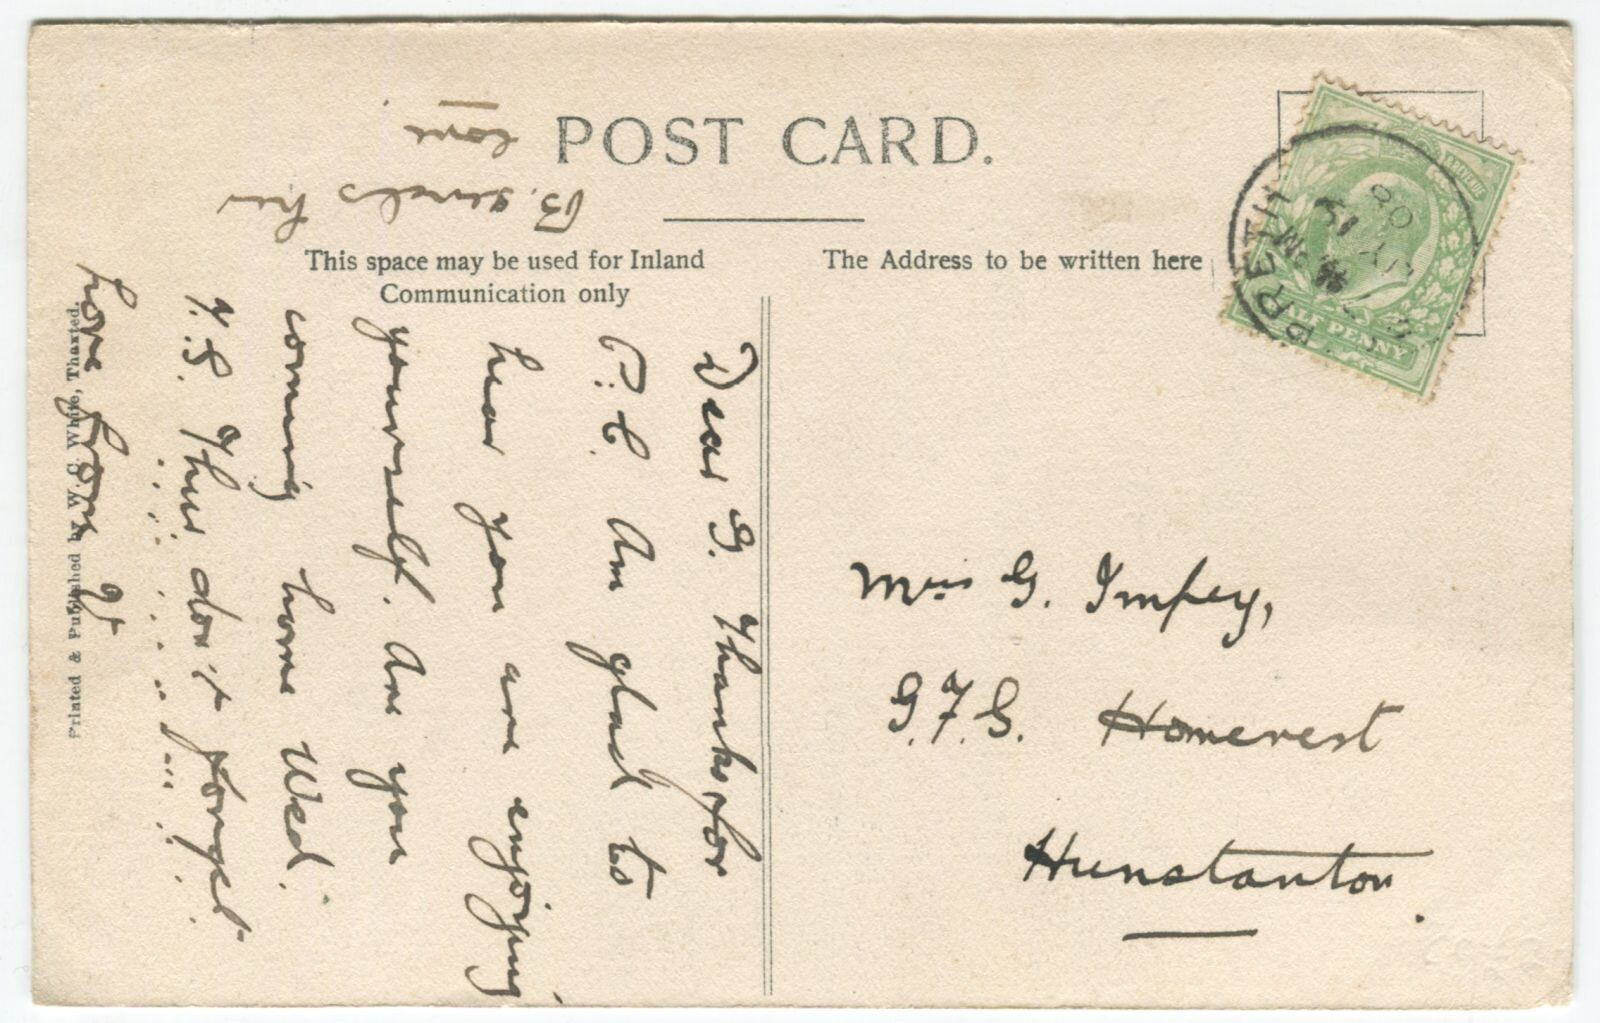 POST CARD.
This space may be used for Inland
Communication only
The Address to be written here
Dear G. Thanks for
P.C. Am glad to
hear you are enjoying
yourself. Are you
coming home Wed.
T.S. Thur don't forget
love from
B. sends her
love
Miss G. Impey,
G.F.S. Homerest
Hunstanton.
Printed & Published by W. C. White, Thaxted.
HALF PENNY
08